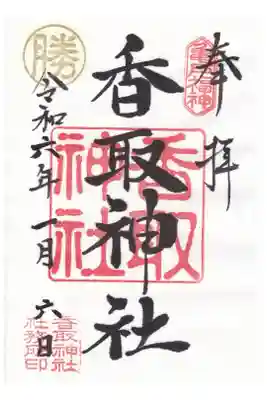 奉拝
亀戸七福神
香取神社
香取神社
勝
令和六年一月六日
香取神社
社務所印